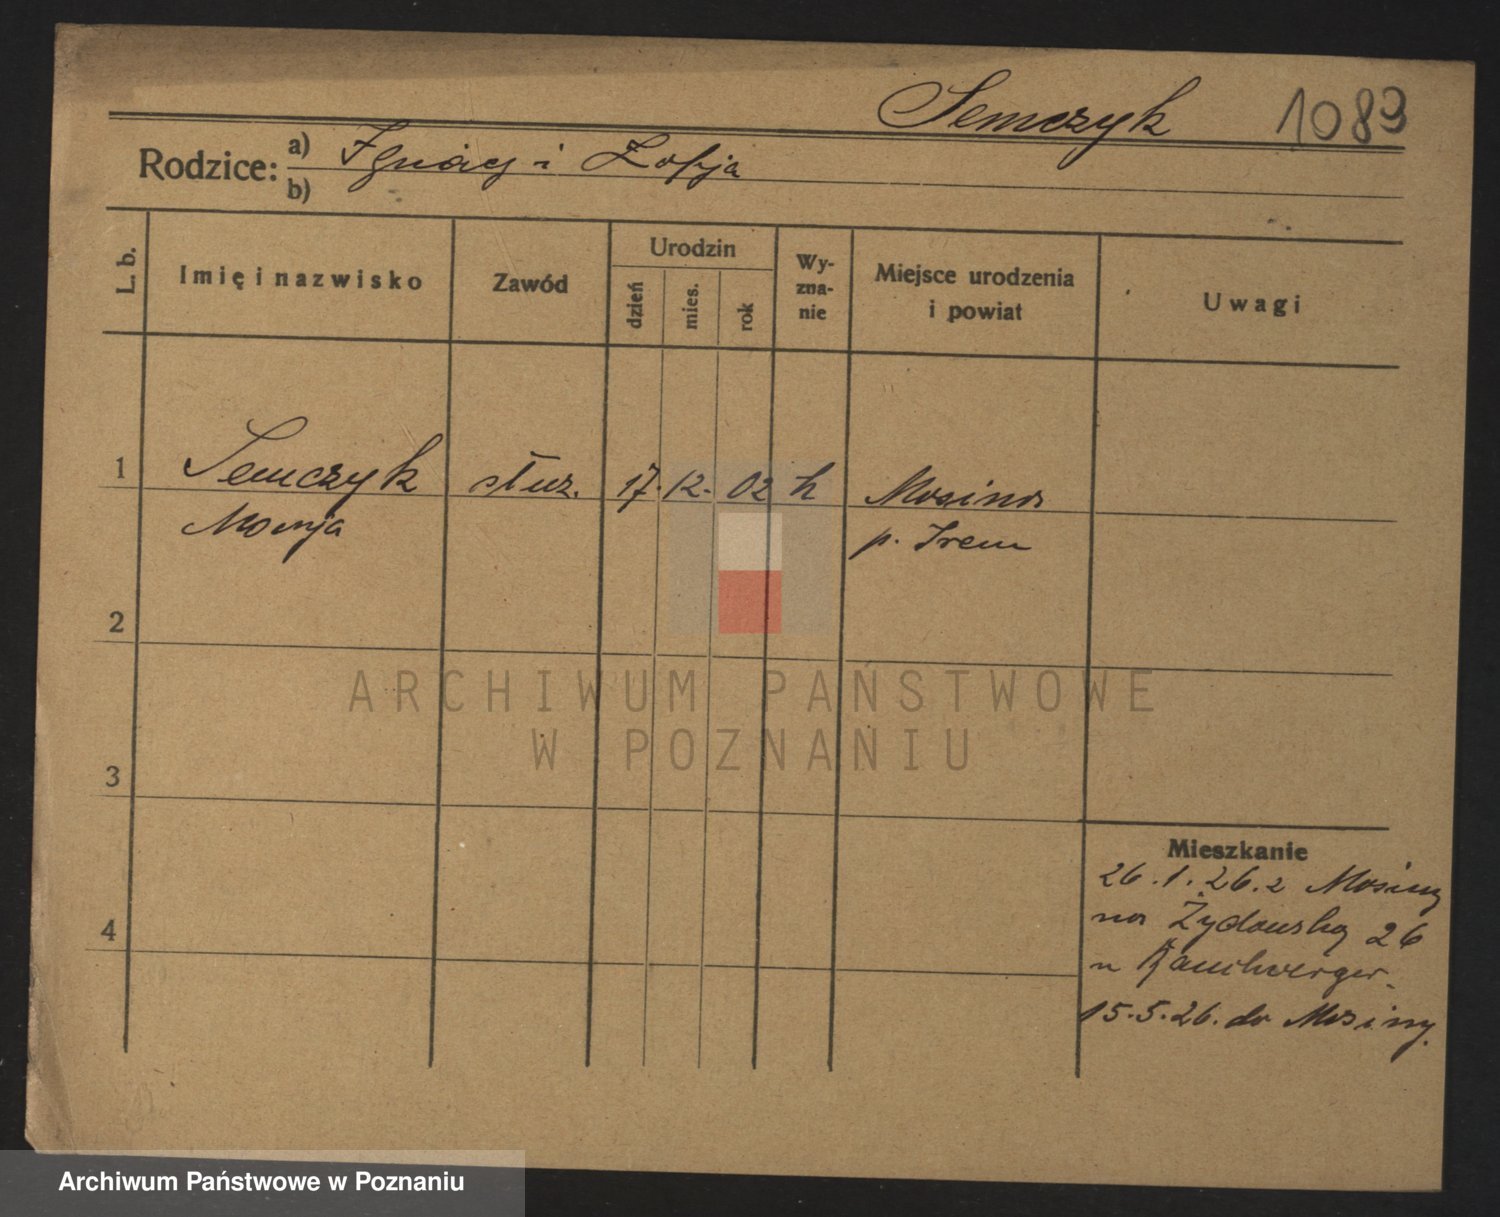 Semczyk 1089
Rodzice: a) Ignacy i Zofja
b)
L. b. Imię i nazwisko Zawód Urodzin dzień mies. rok Wy-zna-nie Miejsce urodzenia i powiat Uwagi
1 Semczyk służ. 17. 12. 02 k Mosina
Marja p. Śrem
2
ARCHIWUM PAŃSTWOWE
W POZNANIU
3
Mieszkanie
26.1.26. z Mosiny
na Żydowską 26
4
u
15.5.26. do Mosiny.
Archiwum Państwowe w Poznaniu